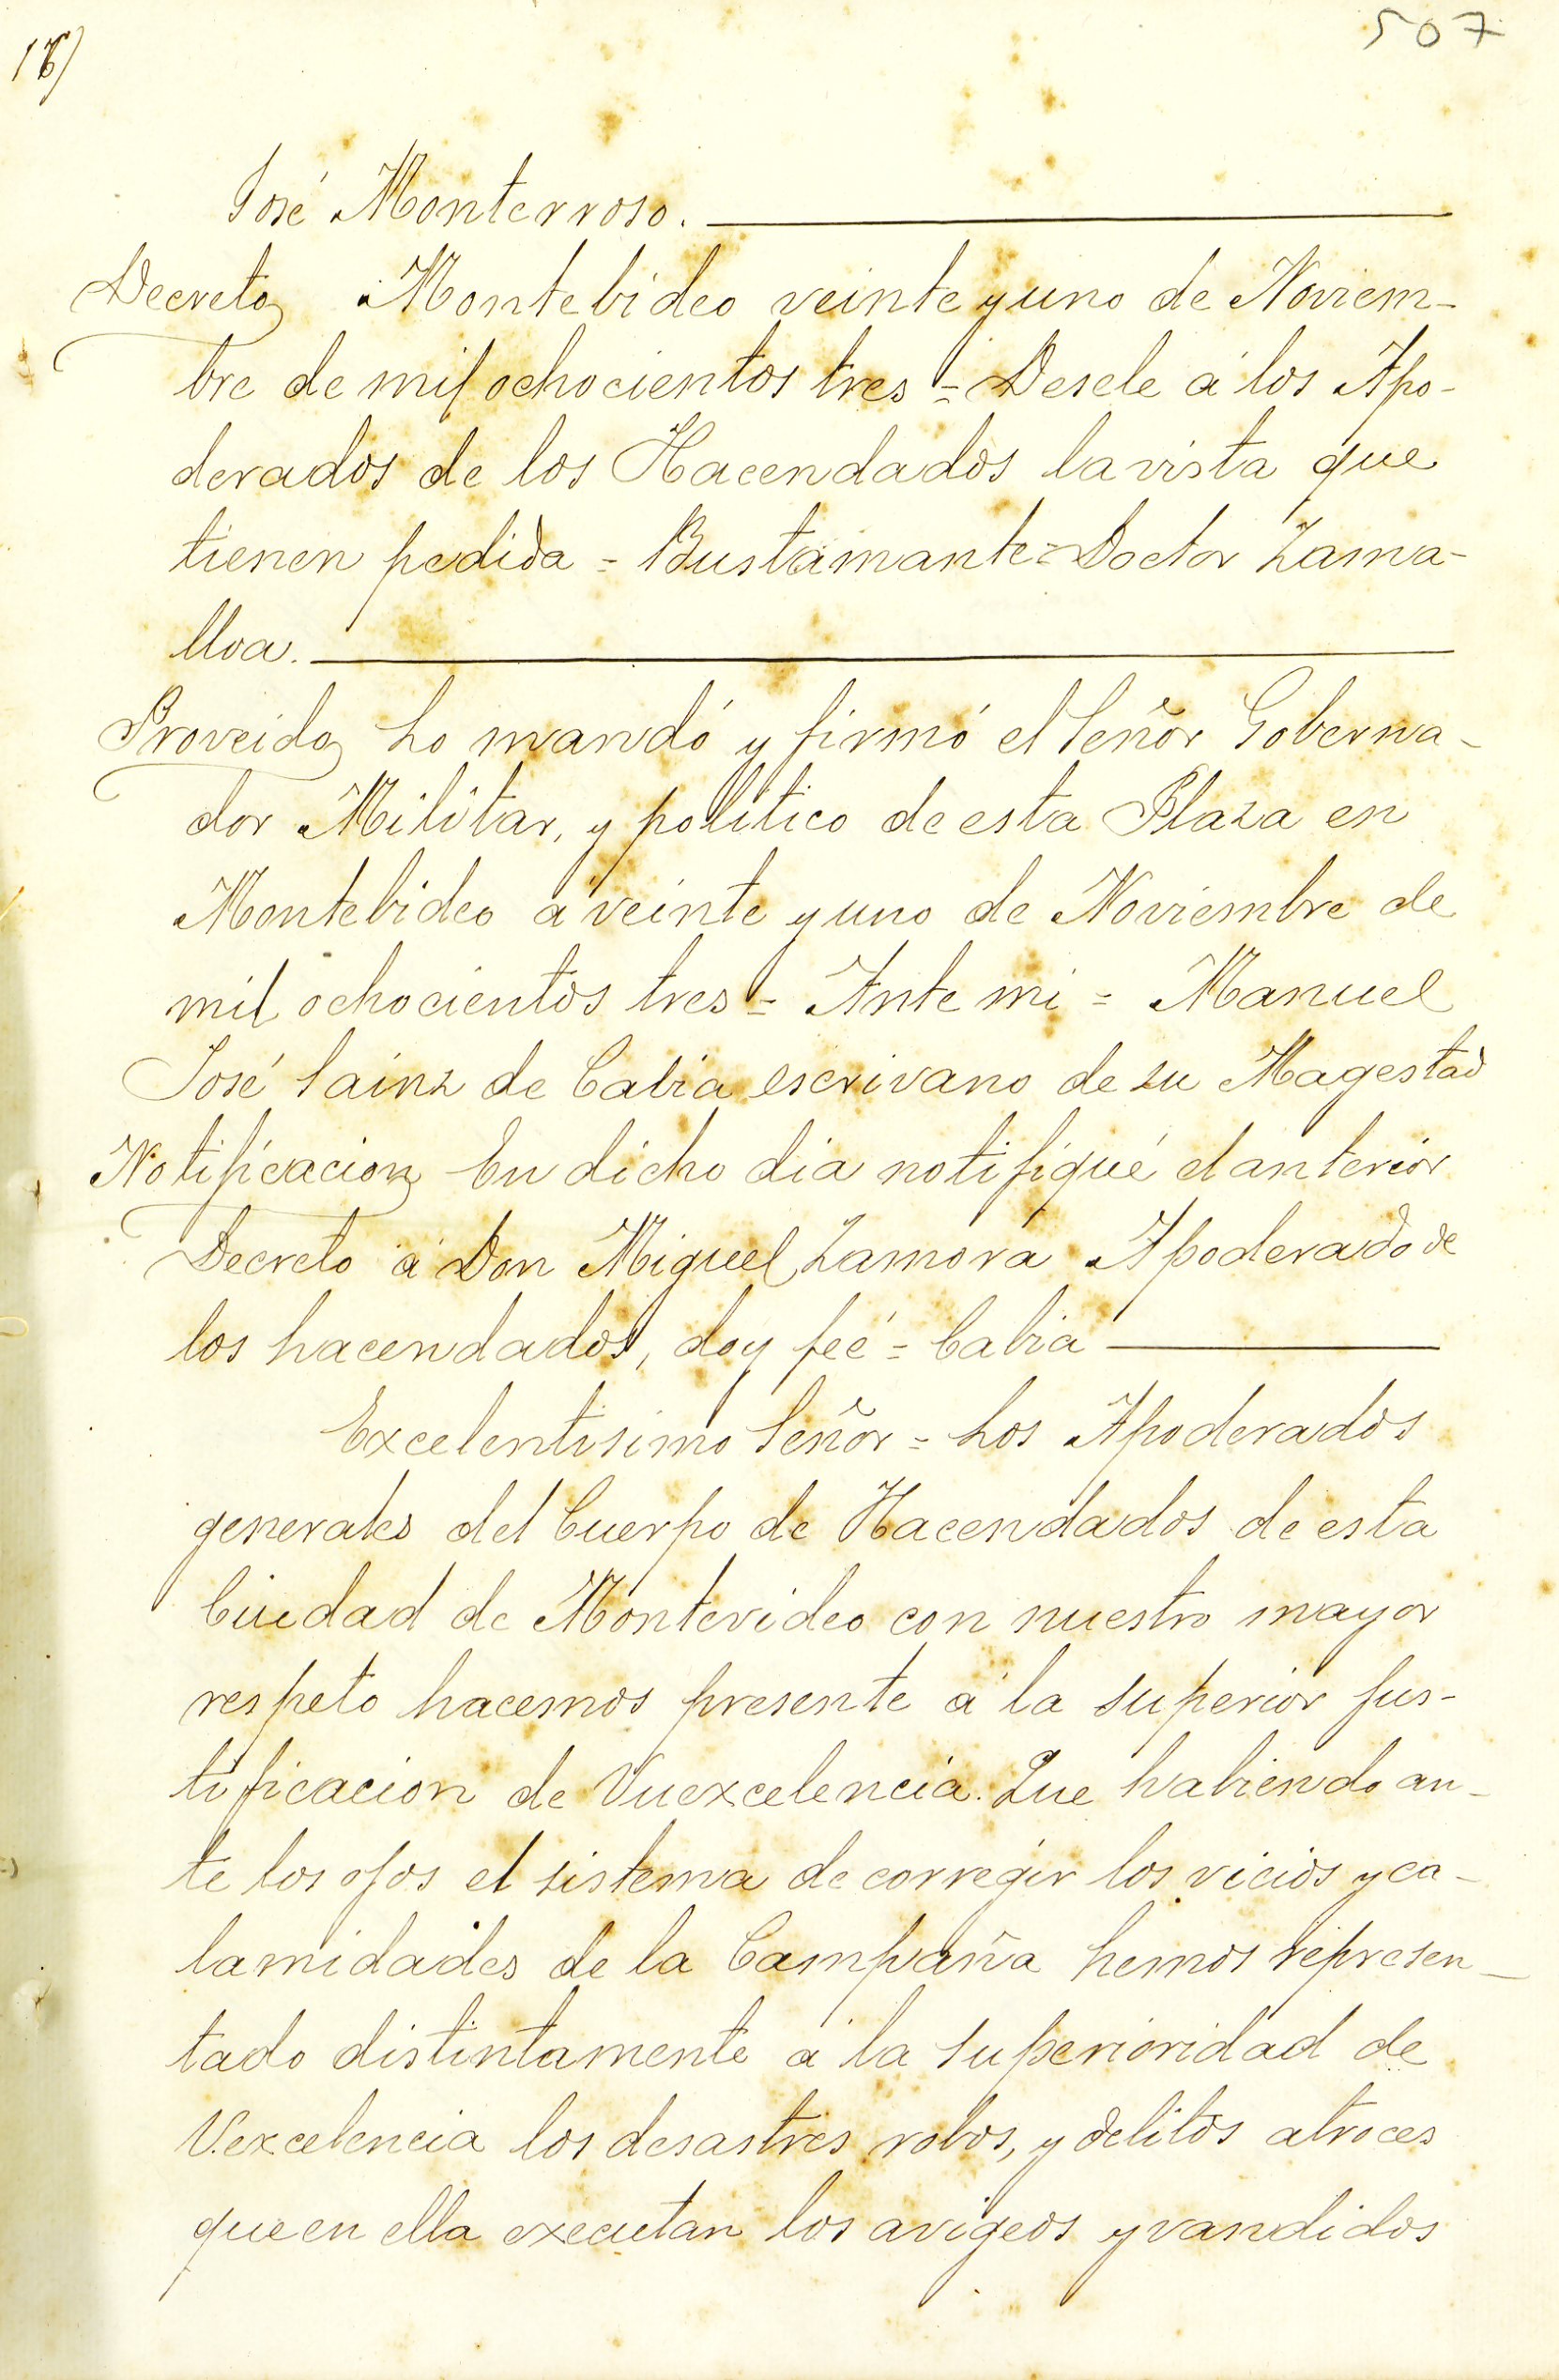 507
José Monterroso.
Decreto Montebideo veinte y uno de Noviem-
bre de mil ochocientos tres = Desele á los Apo-
derados de los Hacendados la vista que
tienen pedida = Bustamante = Doctor Zama-
lloa.
Proveido Lo mandó y firmó el Señor Goberna-
dor Militar, y politico de esta Plaza en
Montebideo a veinte y uno de Noviembre de
mil ochocientos tres = Ante mi = Manuel
José Sainz de Cabia escrivano de su Magestad
Notificacion En dicho dia notifiqué el anterior
Decreto á Don Miguel Zamora Apoderado de
los hacendados, doy feé = Cabia
Excelentisimo Señor = Los Apoderados
generales del Cuerpo de Hacendados de esta
Ciudad de Montevideo con nuestro mayor
respeto hacemos presente á la superior jus-
tificacion de Vuexcelencia. Que habiendo an-
te los ojos el sistema de corregir los vicios y ca-
lamidades de la Campaña hemos represen-
tado distintamente á la superioridad de
V.excelencia los desastres robos, y delitos atroces
que en ella executan los avigeos y vandidos